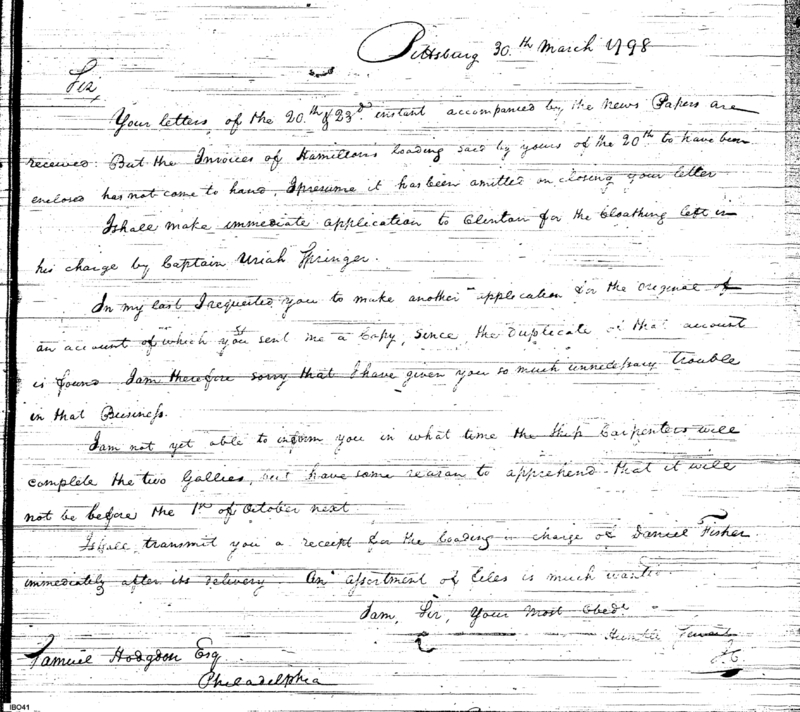 Pittsburg 30th March 1798
Sir,
Your letters of the 20th & 23d instant accompanied by the News Papers are
received. But the Invoices of Hamilton's loading said by yours of the 20th to have been
enclosed has not come to hand, I presume it has been omitted on closing your letter
I shall make immediate application to Clinton for the Cloathing left in
his charge by Captain Uriah Springer.
In my last I requested you to make another application for the original of
an account of which you sent me a Copy, since, the duplicate of that account
is found I am therefore sorry that I have given you so much unnecessary trouble
in that Business.
I am not yet able to inform you in what time the Ship Carpenters will
complete the two Gallies, but have some reason to apprehend that it will
not be before the 1st of October next
I shall transmit you a receipt for the loading in charge of Daniel Fisher
immediately after its delivery. An assortment of files is much wanted
I am, Sir, Your Most Obedt
Humble Servant
Samuel Hodgdon Esq
Philadelphia
IB041